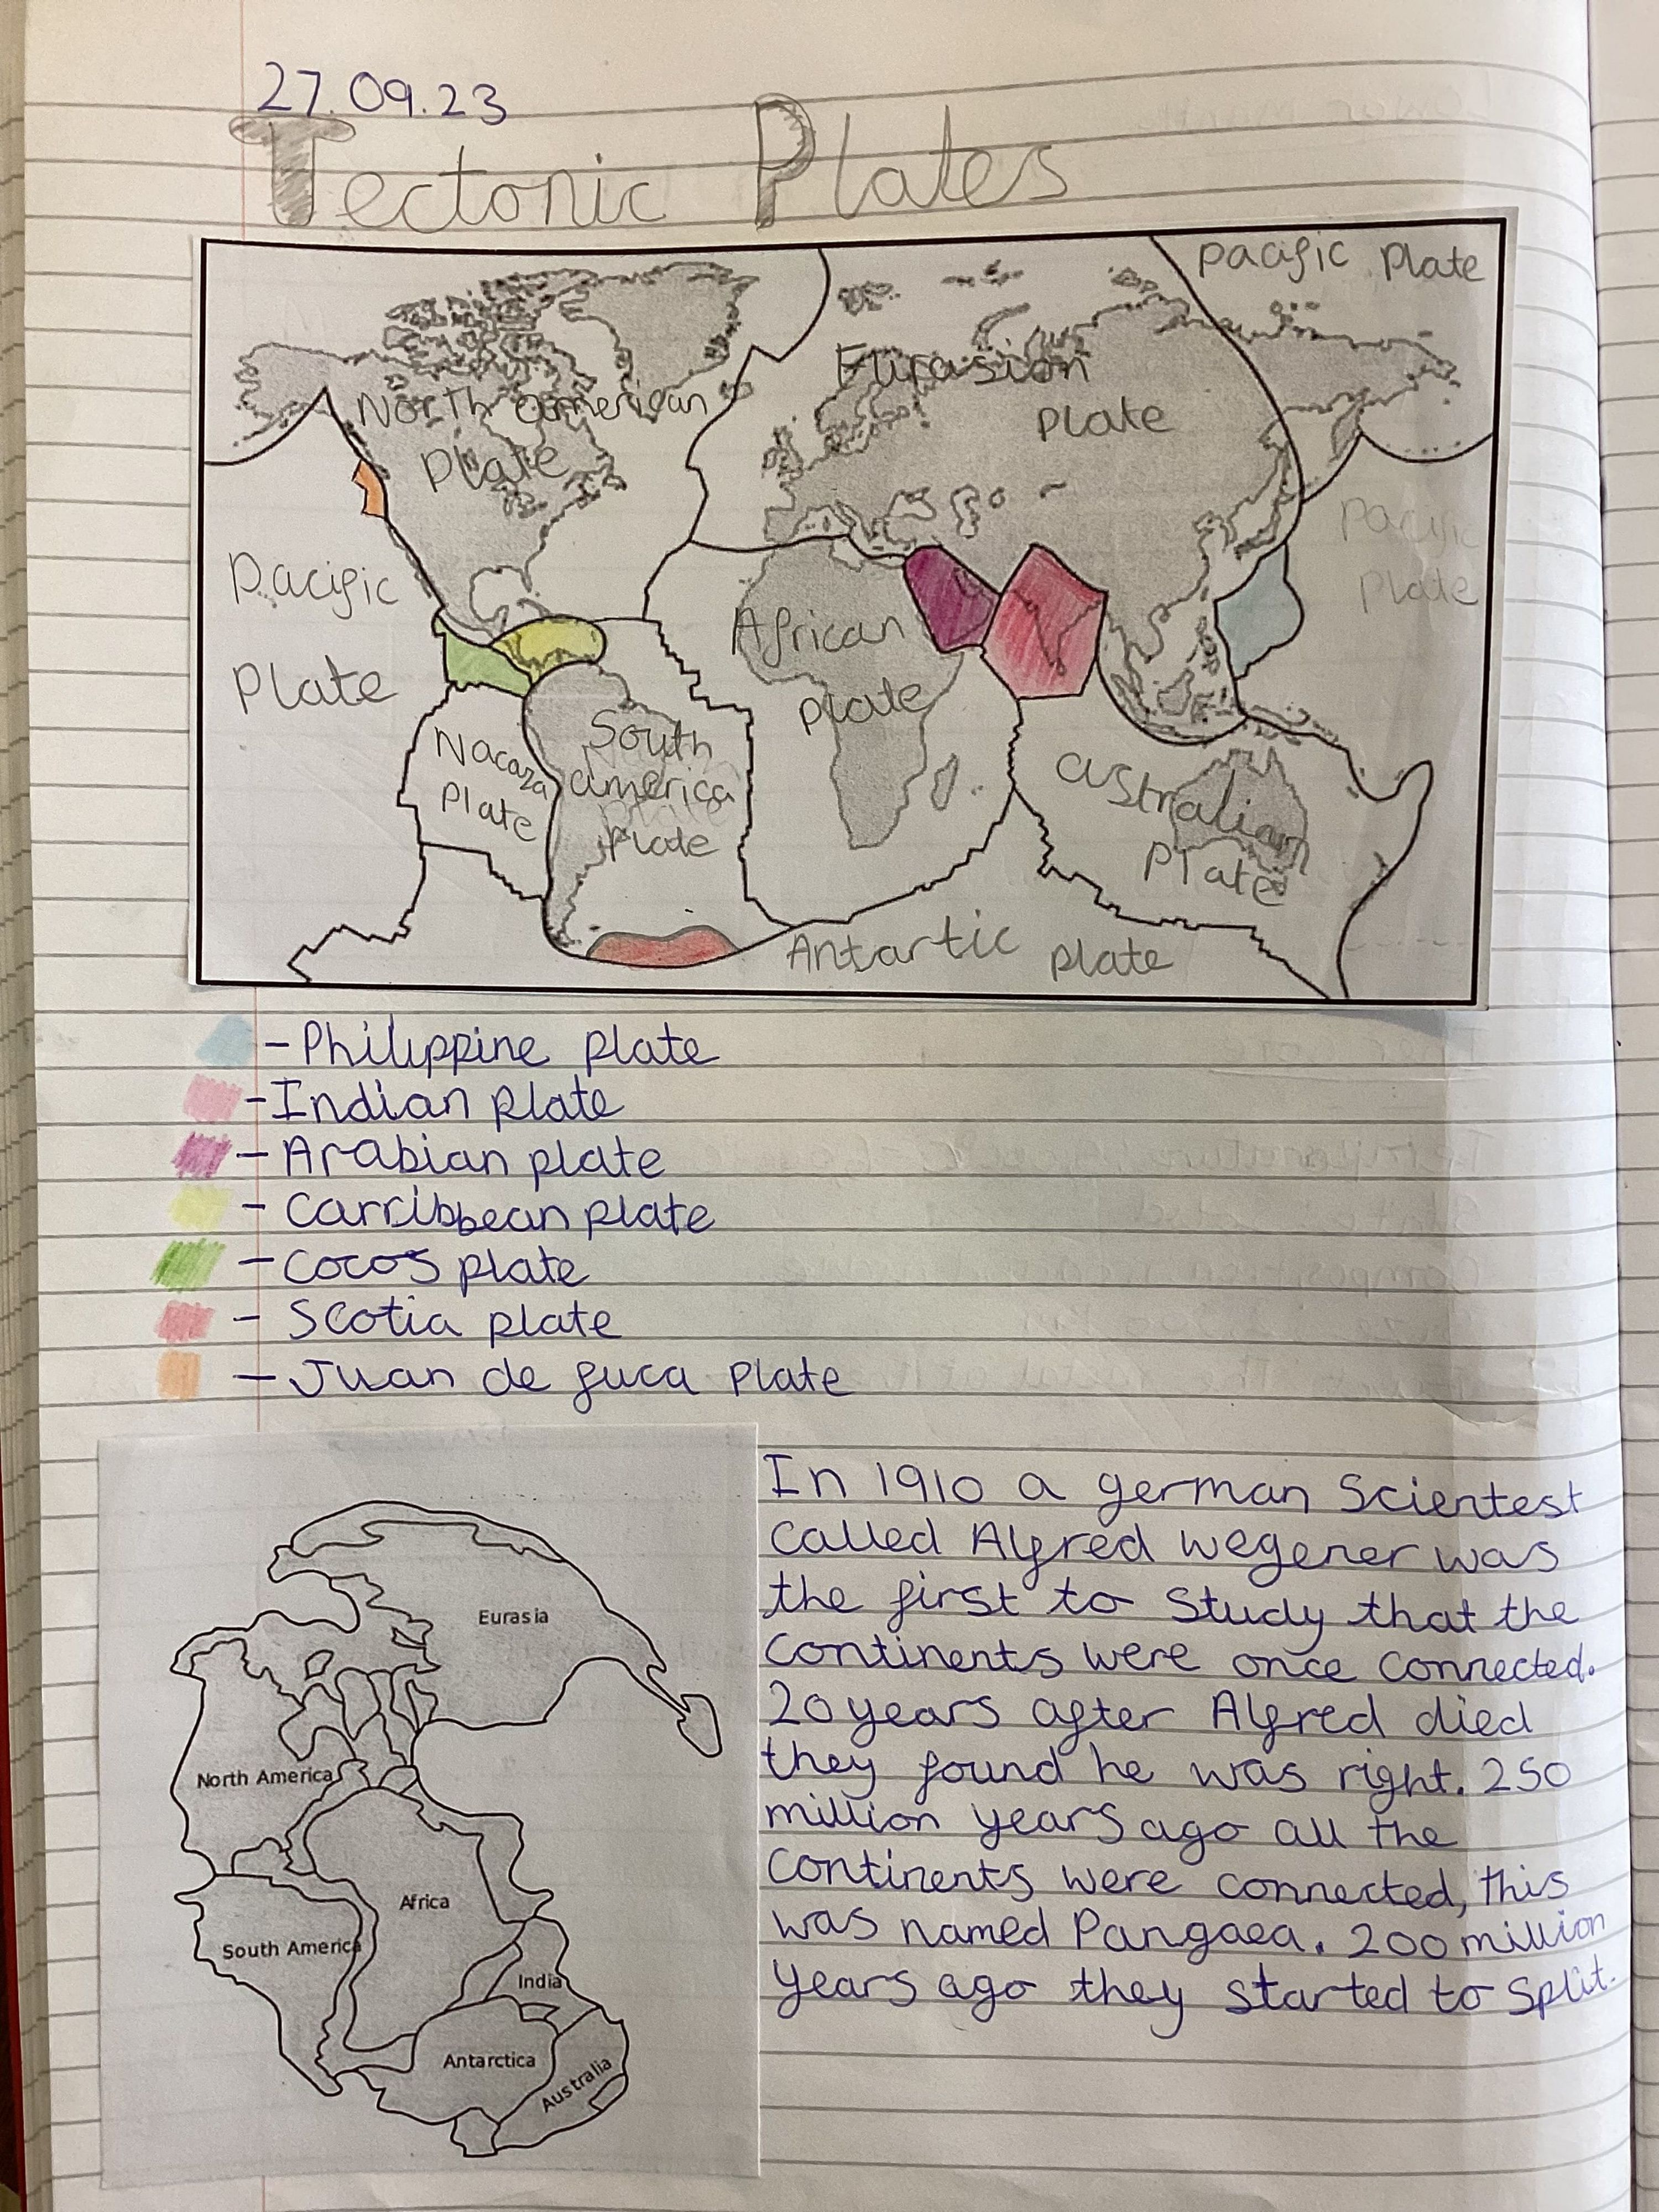 27.09.23
Tectonic Plates
Pacific Plate
Eurasion
Plate
North american
Plate
Pacific
Plate
Pacific
Plate
African
plate
Nacaza
Plate
South
america
Plate
australian
Plate
Antartic plate
- Philippine plate
- Indian plate
- Arabian plate
- Carribbean plate
- Cocos plate
- Scotia plate
- Juan de fuca Plate
Eurasia
North America
Africa
South America
India
Antarctica
Australia
In 1910 a german Scientest
called Alfred wegener was
the first to study that the
continents were once connected.
20 years after Alfred died
they found he was right. 250
million years ago all the
continents were connected, this
was named Pangaea. 200 million
years ago they started to split.